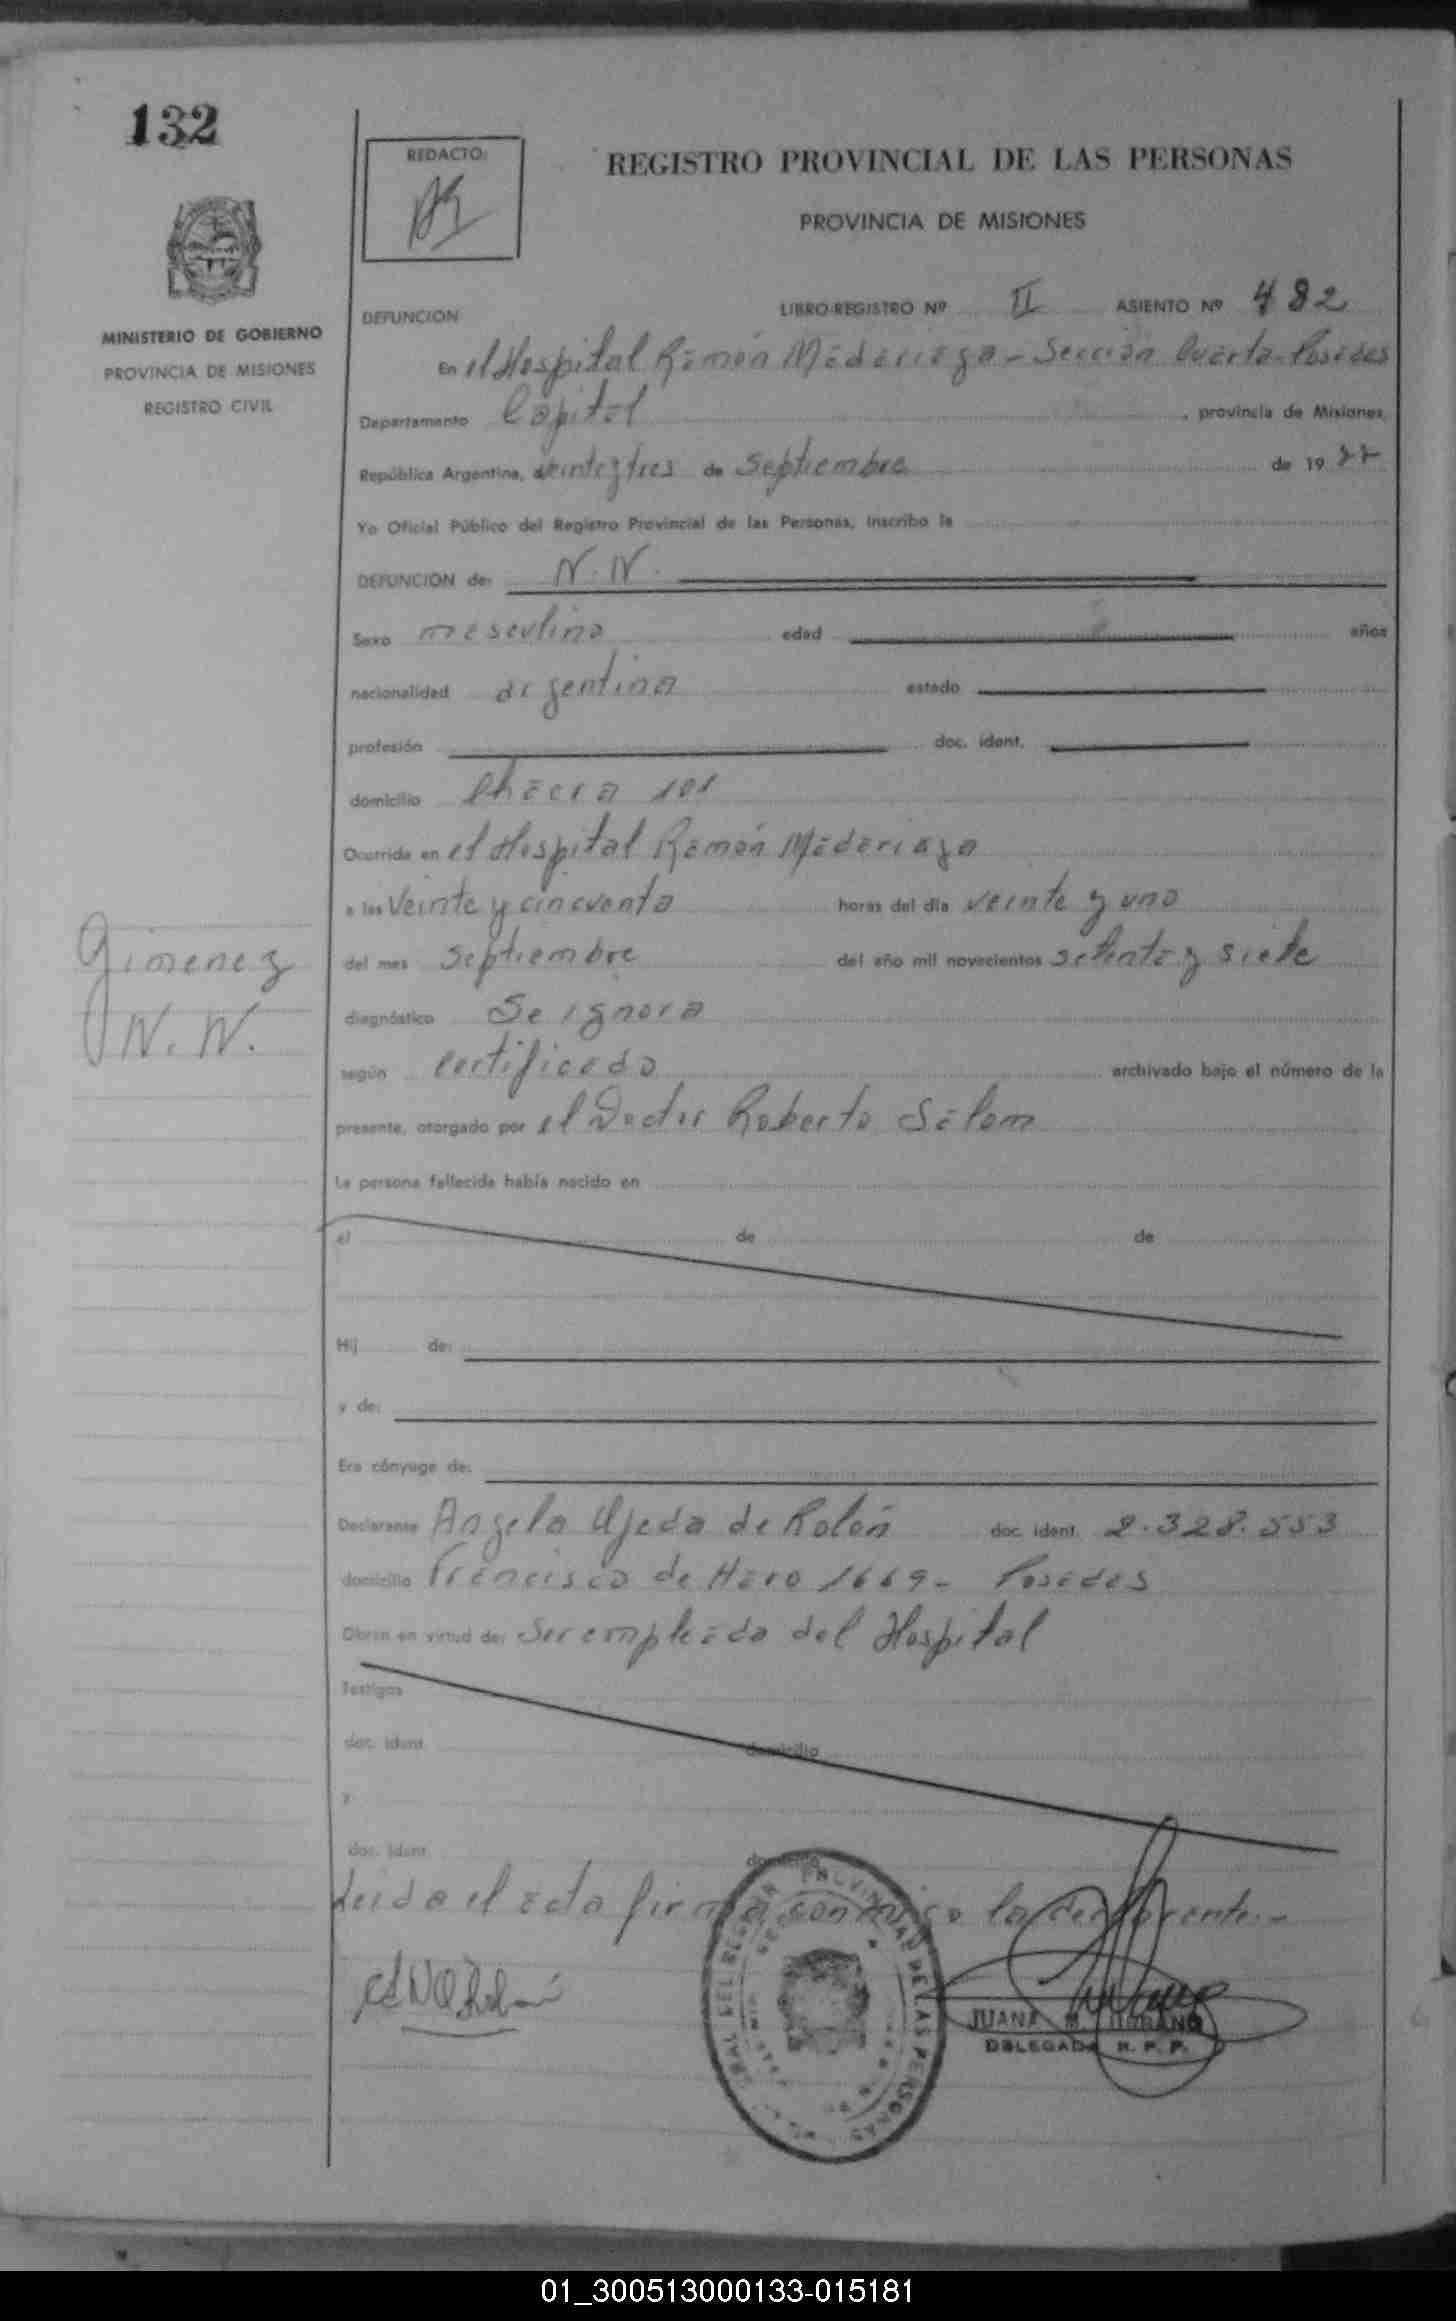 132
REDACTO:
REGISTRO PROVINCIAL DE LAS PERSONAS
PROVINCIA DE MISIONES
MINISTERIO DE GOBIERNO
PROVINCIA DE MISIONES
REGISTRO CIVIL
DEFUNCION LIBRO-REGISTRO Nº II ASIENTO Nº 482
En el Hospital Ramón Madariaga - Sección Cuarta - Posadas
Departamento Capital, provincia de Misiones,
República Argentina, a veinte y tres de Septiembre de 1977
Yo Oficial Público del Registro Provincial de las Personas, inscribo la
DEFUNCION de: N.N.
Sexo masculino edad años
nacionalidad argentina estado
profesión doc. ident.
domicilio Chacra 101
Ocurrida en el Hospital Ramón Madariaga
a las Veinte y cincuenta horas del día veinte y uno
del mes Septiembre del año mil novecientos setenta y siete
Gimenez
N.N.
diagnóstico Se ignora
según certificado archivado bajo el número de la
presente, otorgado por el Doctor Roberto Salom
La persona fallecida había nacido en
el de de
Hij de:
y de:
Era cónyuge de:
Declarante Angela Ojeda de Rolón doc. ident. 2.328.553
domicilio Francisco de Haro 1669 - Posadas
Obran en virtud de: Ser empleada del Hospital
Testigos
doc. ident. domicilio
y
doc. ident. domicilio
Leida el acta firma conmigo la declarante.-
JUANA M. URBANO
DELEGADA R. P. P.
01_300513000133-015181